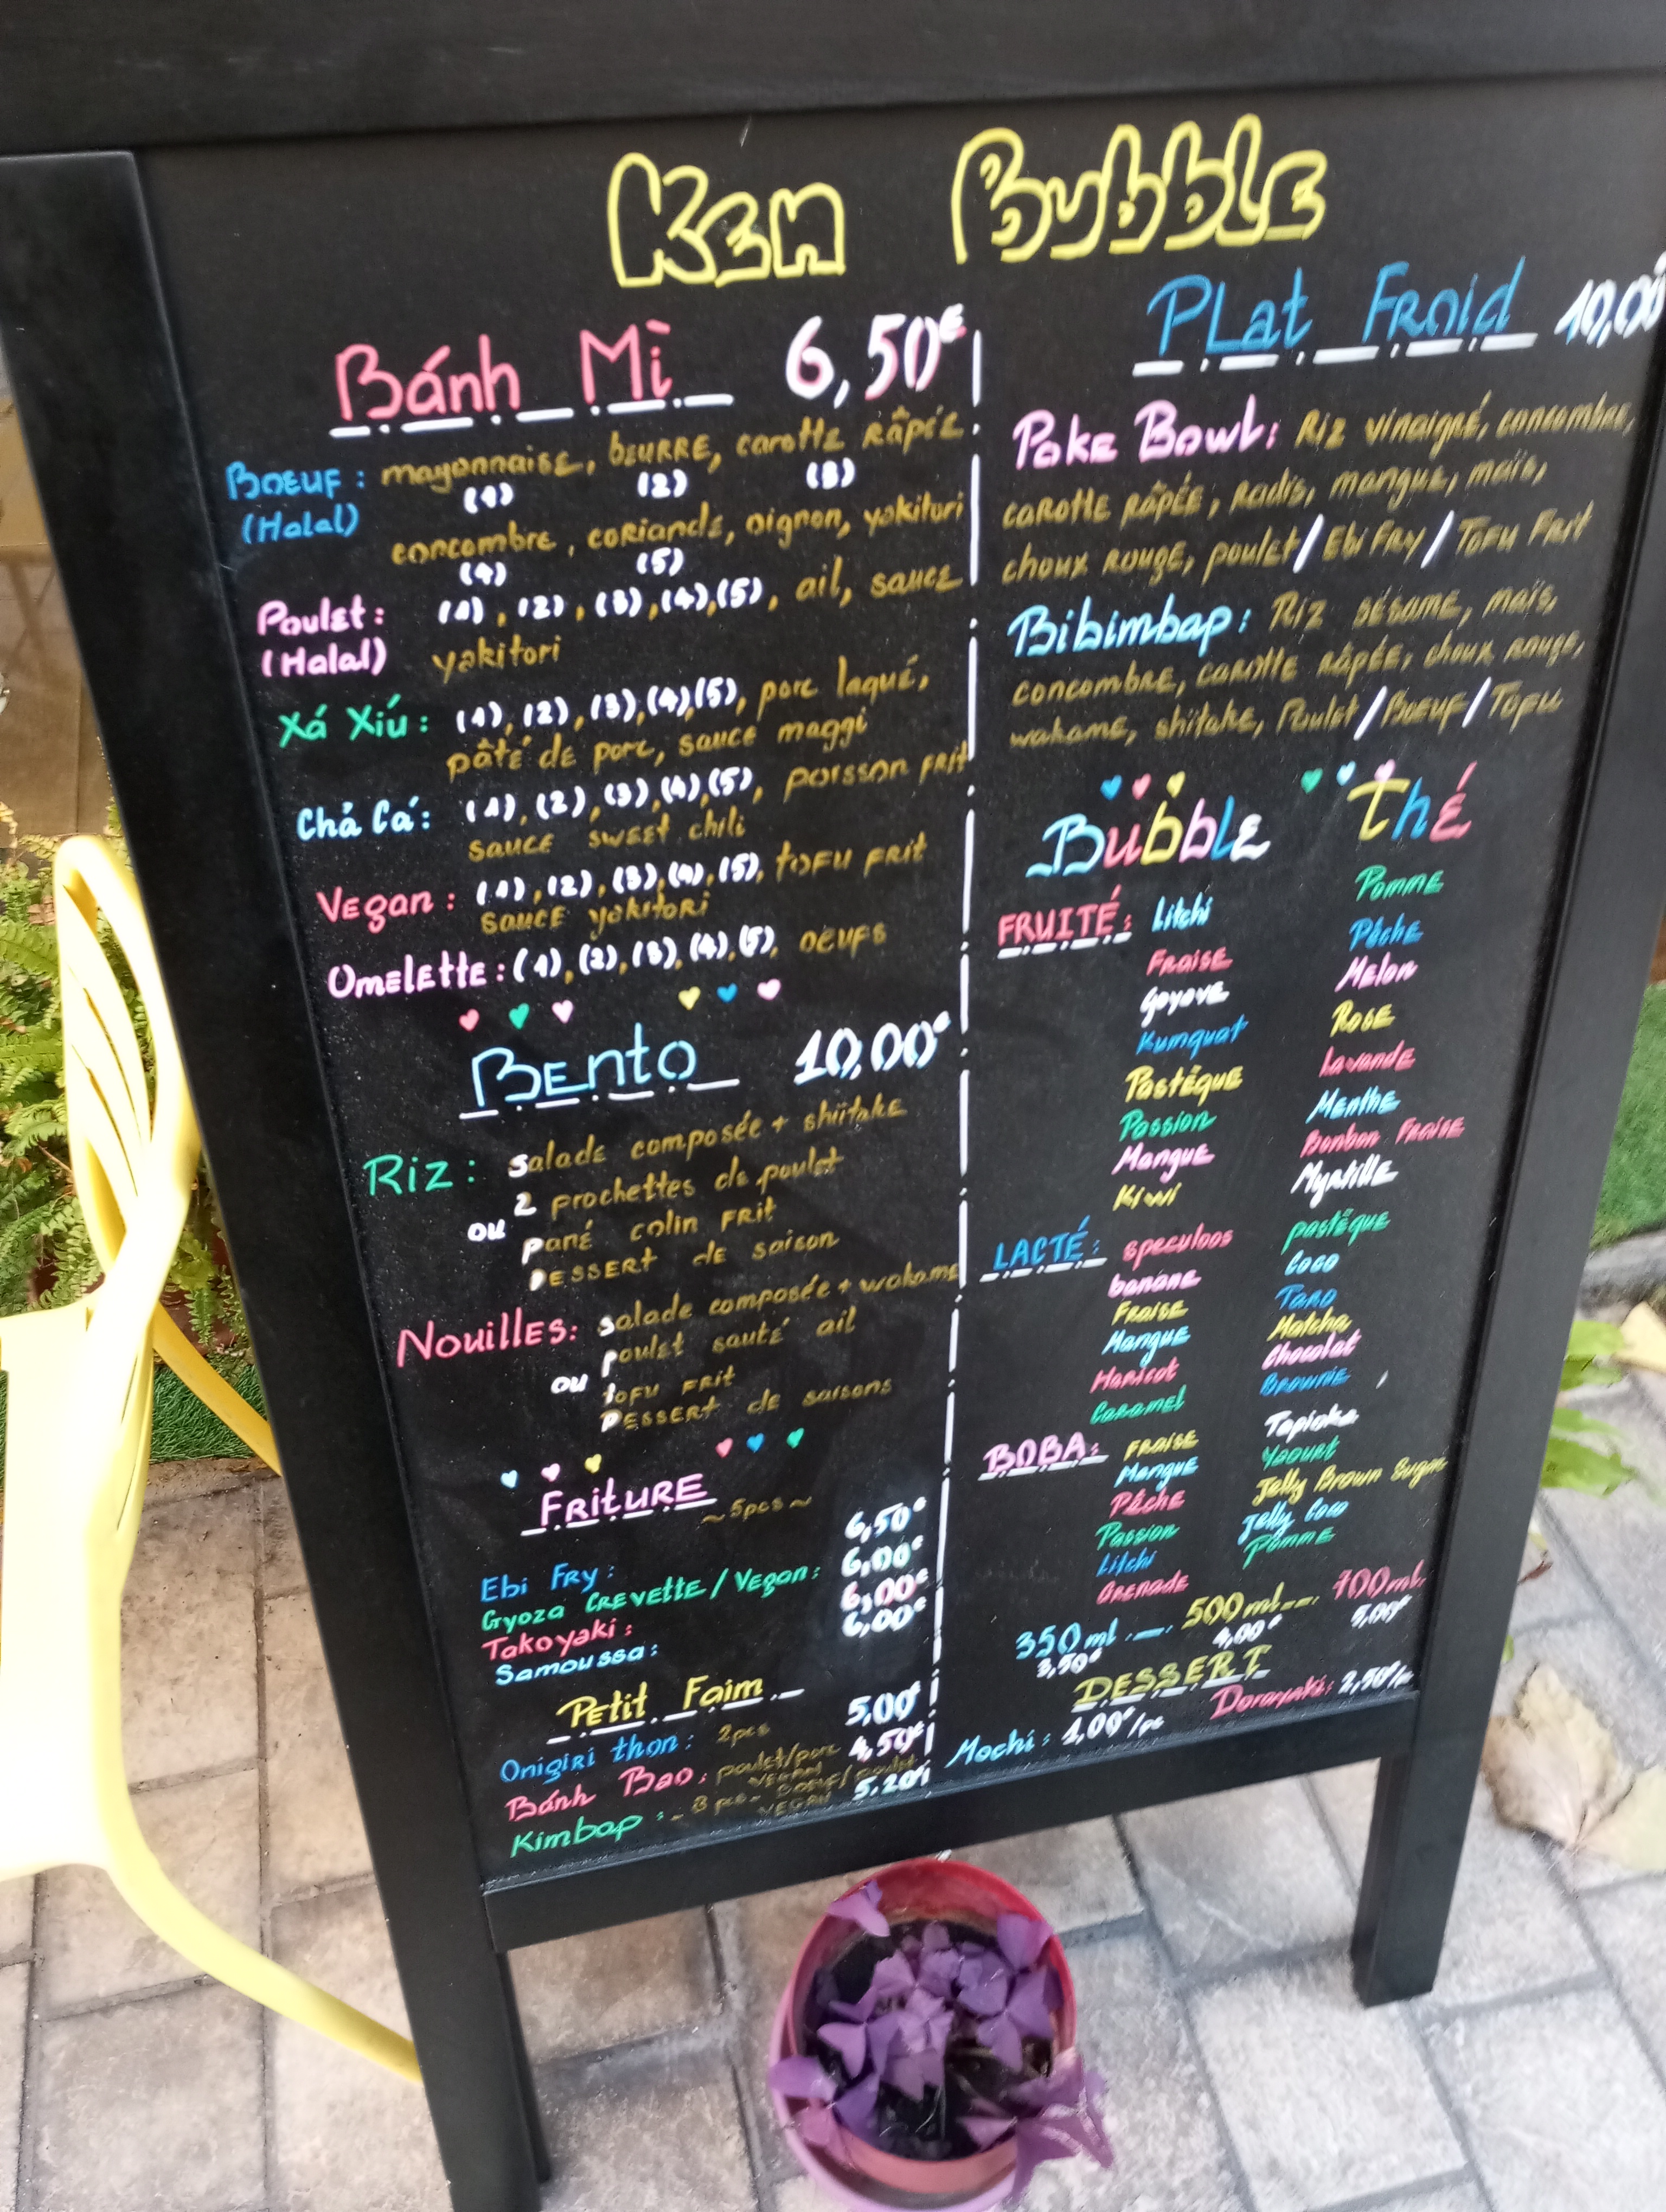 Ken Bubble
Bánh Mì 6,50€
Boeuf : mayonnaise, beurre, carotte râpée
(Halal) (1) (2) (3)
concombre, coriande, oignon, yakitori
(4) (5)
Poulet : (1), (2), (3), (4), (5), ail, sauce
(Halal) yakitori
Xá Xíu : (1), (2), (3), (4), (5), porc laqué,
pâté de porc, sauce maggi
Chả Cá : (1), (2), (3), (4), (5), poisson frit
sauce sweet chili
Vegan : (1), (2), (3), (4), (5), tofu frit
sauce yakitori
Omelette : (1), (2), (3), (4), (5), oeufs
Bento 10,00€
Riz : salade composée + shiitake
2 prochettes de poulet
ou pané colin frit
dessert de saison
Nouilles : salade composée + wakame
poulet sauté ail
ou tofu frit
dessert de saisons
Friture ~5pcs~
Ebi Fry : 6,50€
Gyoza Crevette/Vegan : 6,00€
Takoyaki : 6,00€
Samoussa : 6,00€
Petit Faim
Onigiri thon : 2pcs 5,00€
Bánh Bao : poulet/porc 4,50€
vegan
Kimbap : 8 pcs - boeuf/poulet 5,20€
vegan
Plat Froid 10,00
Poke Bowl : Riz vinaigré, concombre,
carotte râpée, radis, mangue, maïs,
choux rouge, poulet/Ebi Fry/Tofu Frit
Bibimbap : Riz sésame, maïs,
concombre, carotte râpée, choux rouge,
wakame, shiitake, Poulet/Boeuf/Tofu
Bubble Thé
FRUITÉ : Litchi Pomme
Fraise Pêche
Goyave Melon
Kumquat Rose
Pastèque Lavande
Passion Menthe
Mangue Bonbon Fraise
Kiwi Myrtille
LACTÉ : speculoos pastèque
banane Coco
Fraise Taro
Mangue Matcha
Haricot Chocolat
Caramel Brownie
BOBA : Fraise Tapioka
Mangue Yaourt
Pêche Jelly Brown Sugar
Passion Jelly Coco
Litchi Pomme
Grenade
350ml 500ml 700ml
3,50€ 4,00€ 5,00€
DESSERT
Mochi : 1,00€/pc Dorayaki : 2,50€/pc